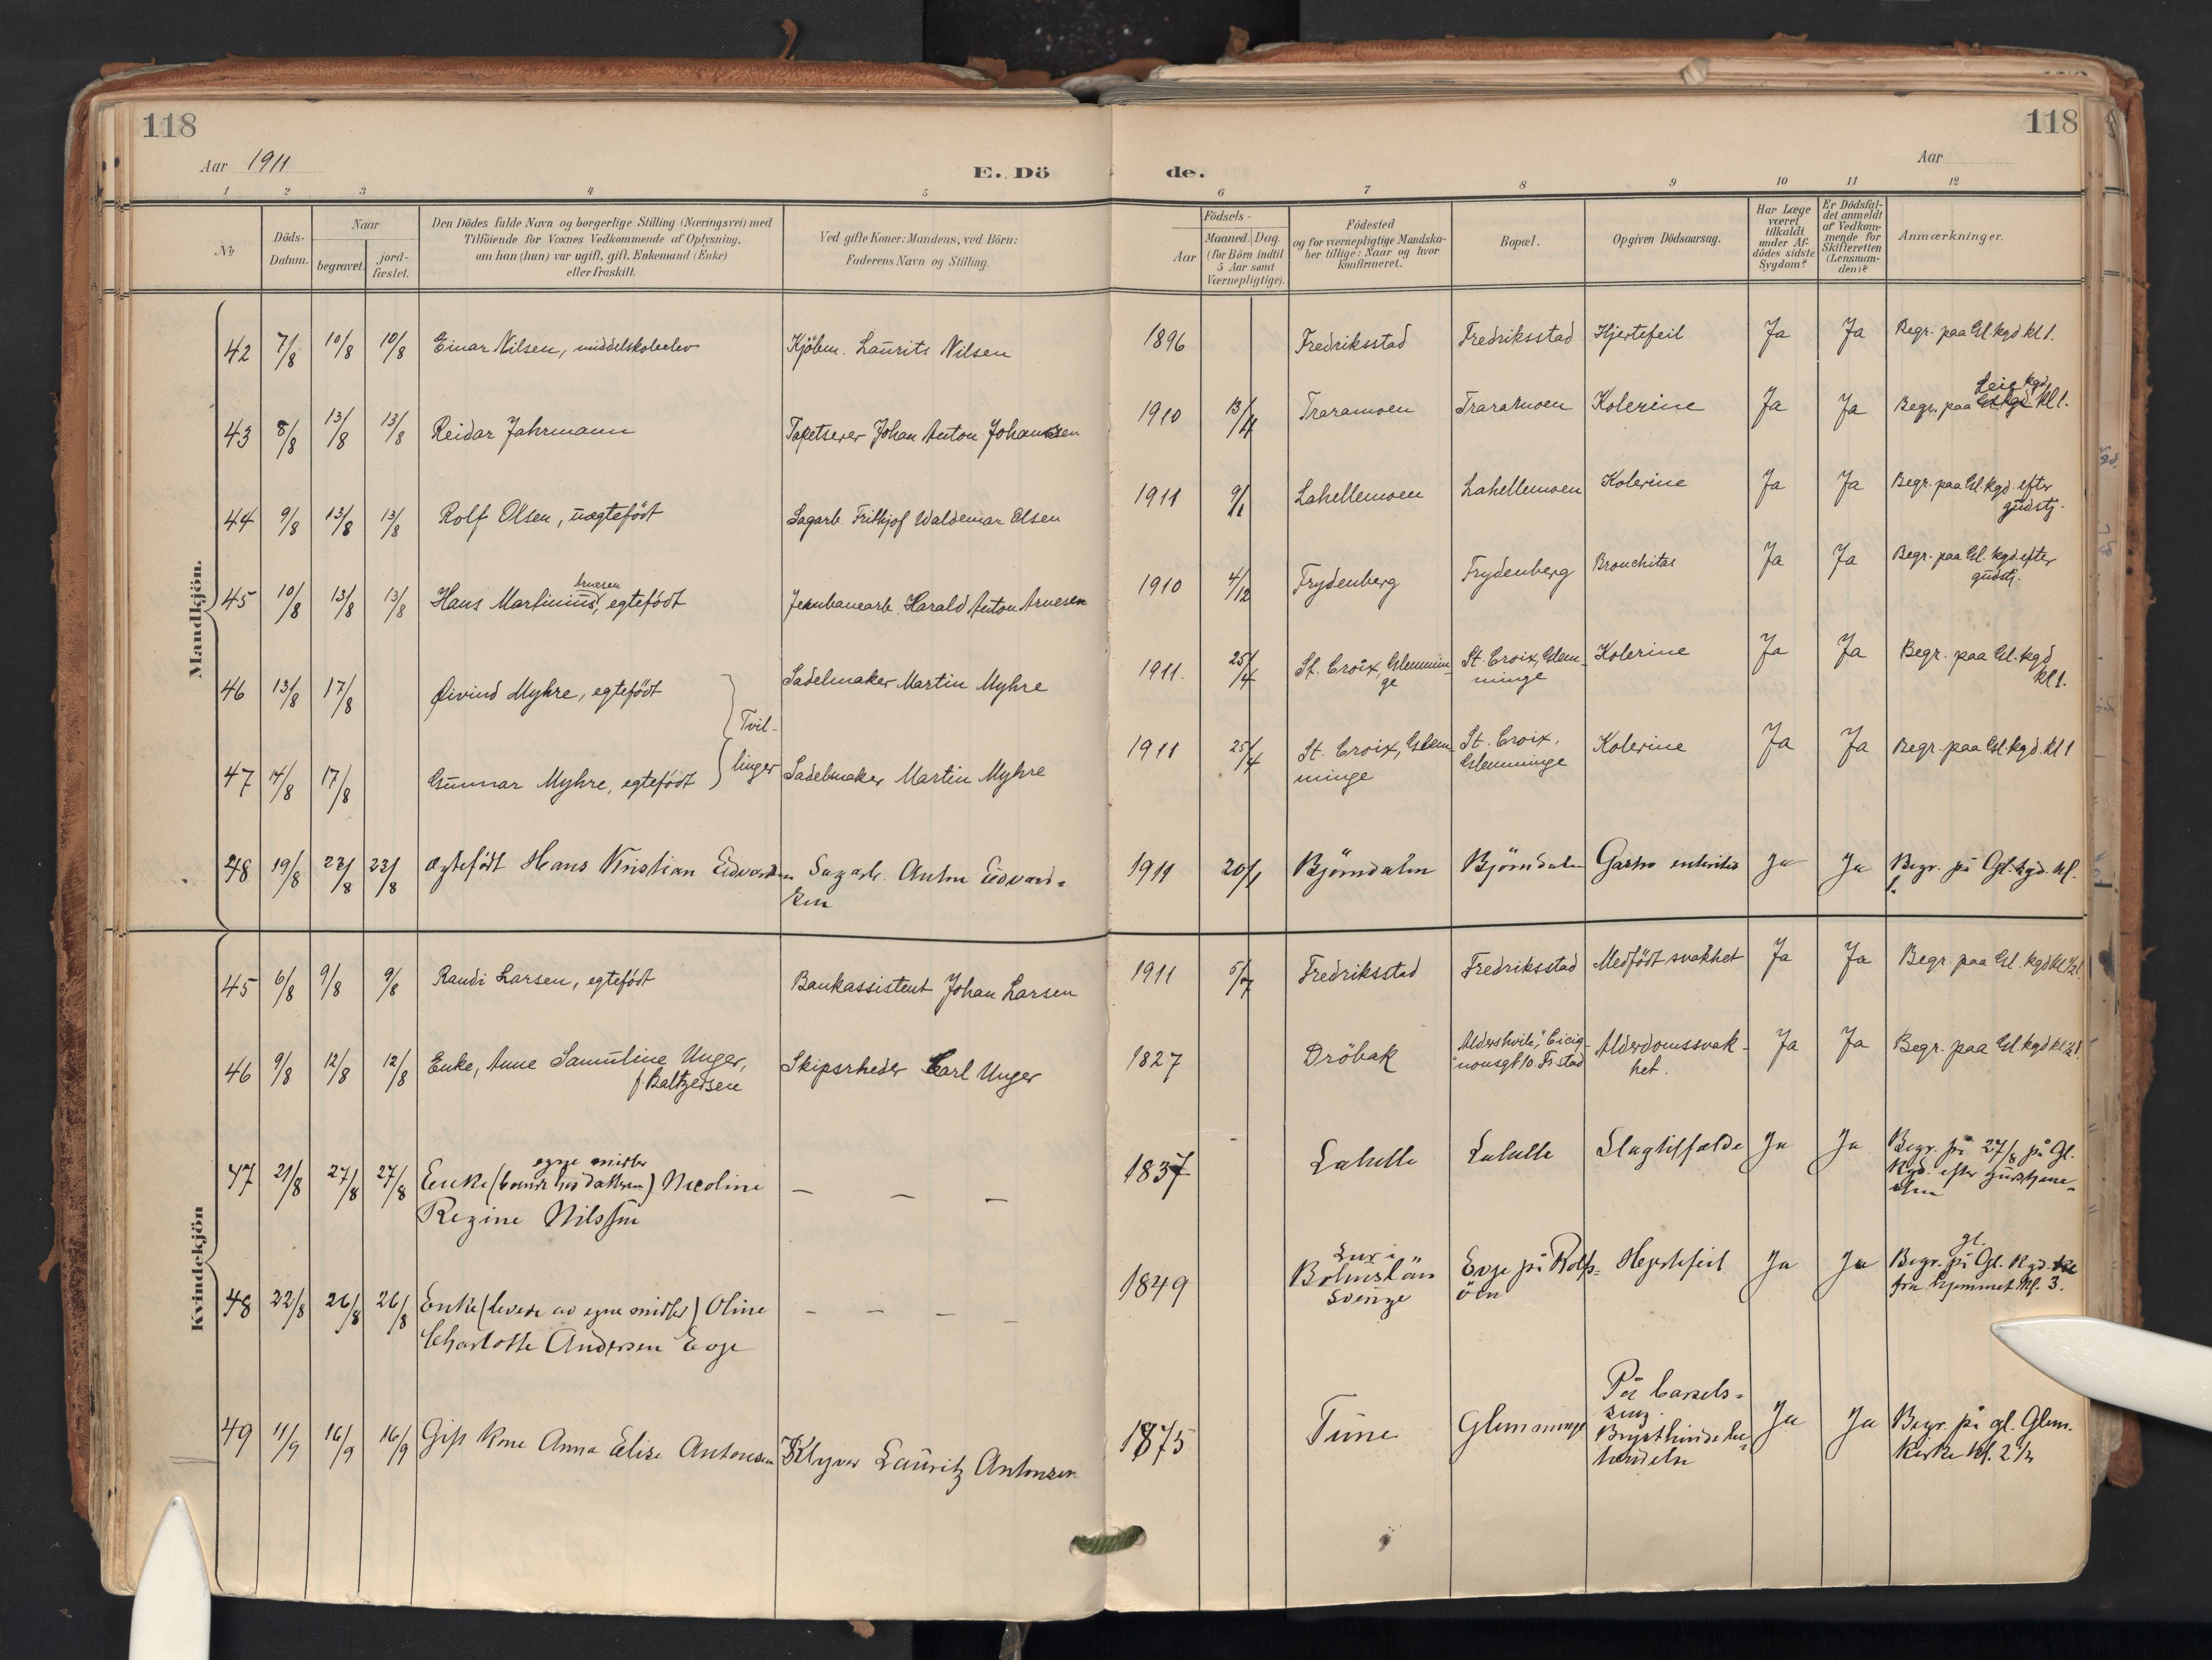 118
118
Aar 1911
E. Dö
de.
Aar
1 2 3 4 5 6 7 8 9 10 11 12
No.
Döds-Datum.
Naar
begravet.
jord-fæstet.
Den Dödes fulde Navn og borgerlige Stilling (Næringsvei) med
Tilföiende for Voxnes Vedkommende af Oplysning,
om han (hun) var ugift, gift, Enkemand (Enke)
eller fraskilt.
Ved gifte Koner: Mandens, ved Börn:
Faderens Navn og Stilling.
Födsels-
Aar
Maaned. Dag.
(for Börn indtil
5 Aar samt
Værnepligtige).
Födested
og for værnepligtige Mandska-
ber tillige: Naar og hvor
konfirmeret.
Bopæl.
Opgiven Dödsaarsag.
Har Læge
været
tilkaldt
under Af-
dödes sidste
Sygdom?
Er Dödsfal-
det anmeldt
af Vedkom-
mende for
Skifteretten
(Lensman-
den)?
Anmærkninger.
Mandkjön.
42 7/8 10/8 10/8 Einar Nilsen, middelskoleelev Kjöbm. Laurits Nilsen 1896 Fredriksstad Fredriksstad Hjertefeil Ja Ja Begr. paa Gl. kgd kl 1.
43 8/8 13/8 13/8 Reidar Jahrmann Tapetserer Johan Anton Johansen 1910 13/4 Traramoen Traramoen Kolerine Ja Ja Begr. paa Gl. kgd kl 1.
Leie kgd
44 9/8 13/8 13/8 Rolf Olsen, uægtefödt Sagarb. Frithjof Waldemar Olsen 1911 9/1 Lahellemoen Lahellemoen Kolerine Ja Ja Begr. paa Gl. kgd. efter
gudstj.
45 10/8 13/8 13/8 Hans Martinius Arnesen, egtefödt Jernbanearb. Harald Anton Arnesen 1910 4/12 Frydenberg Frydenberg Bronchitas Ja Ja Begr. paa Gl. kgd. efter
gudstj.
46 13/8 17/8 Øivind Myhre, egtefödt Sadelmaker Martin Myhre 1911. 25/4 St. Croix, Glemmin-
ge St. Croix, Glem-
minge Kolerine Ja Ja Begr. paa Gl. kgd
kl 1.
Tvil-
linger
47 14/8 17/8 Gunnar Myhre, egtefödt Sadelmaker Martin Myhre 1911 25/4 St. Croix, Glem-
minge St. Croix,
Glemminge Kolerine Ja Ja Begr. paa Gl. kgd. kl 1
48 19/8 23/8 23/8 ægtefödt Hans Kristian Edvardsen Sagarb. Anton Edvard-
sen 1911 20/1 Björndalen Björndalen Gastro enteritis Ja Ja Begr. på Ogl. kgd. kl.
1.
Kvindekjön
45 6/8 9/8 9/8 Randi Larsen, egtefödt Bankassistent Johan Larsen 1911 5/7 Fredriksstad Fredriksstad Medfödt svakhet Ja Ja Begr. paa Gl. kgd kl 1/2 1.
46 9/8 12/8 12/8 Enke, Anne Samuline Unger,
f. Baltzersen Skipsrheder Carl Unger 1827 Dröbak "Aldershvile", Cicig-
nonsgt 10. Fr.stad Alderdomssvak-
het. Ja Ja Begr. paa Gl. kgd kl 1/2 1.
47 21/8 27/8 27/8 Enke (egne midler boende hos datteren) Nicoline
Regine Nilssen — — — 1837 Lahelle Lahelle Slagtilfælde Ja Ja Begr. på 27/8 på Gl.
Kgd. efter gudstjene-
sten
48 22/8 26/8 26/8 Enke (levede av egne midler) Oline
Charlotte Andersen Evje — — — — 1849 Lur i
Bohuslän
Sverige Evje på Rolfs-
öen Hjertefeil Ja Ja Begr. på Gl. Kgd.
fra hjemmet kl. 3.
49 11/9 16/9 16/9 Gift Kone Anna Elise Antonsen Klyver Lauritz Antonsen 1875 Tune Glemminge På barsels-
seng.
Brysthindebe-
tændelse Ja Ja Begr. på gl. Glem.
Kirke kl. 2 1/2